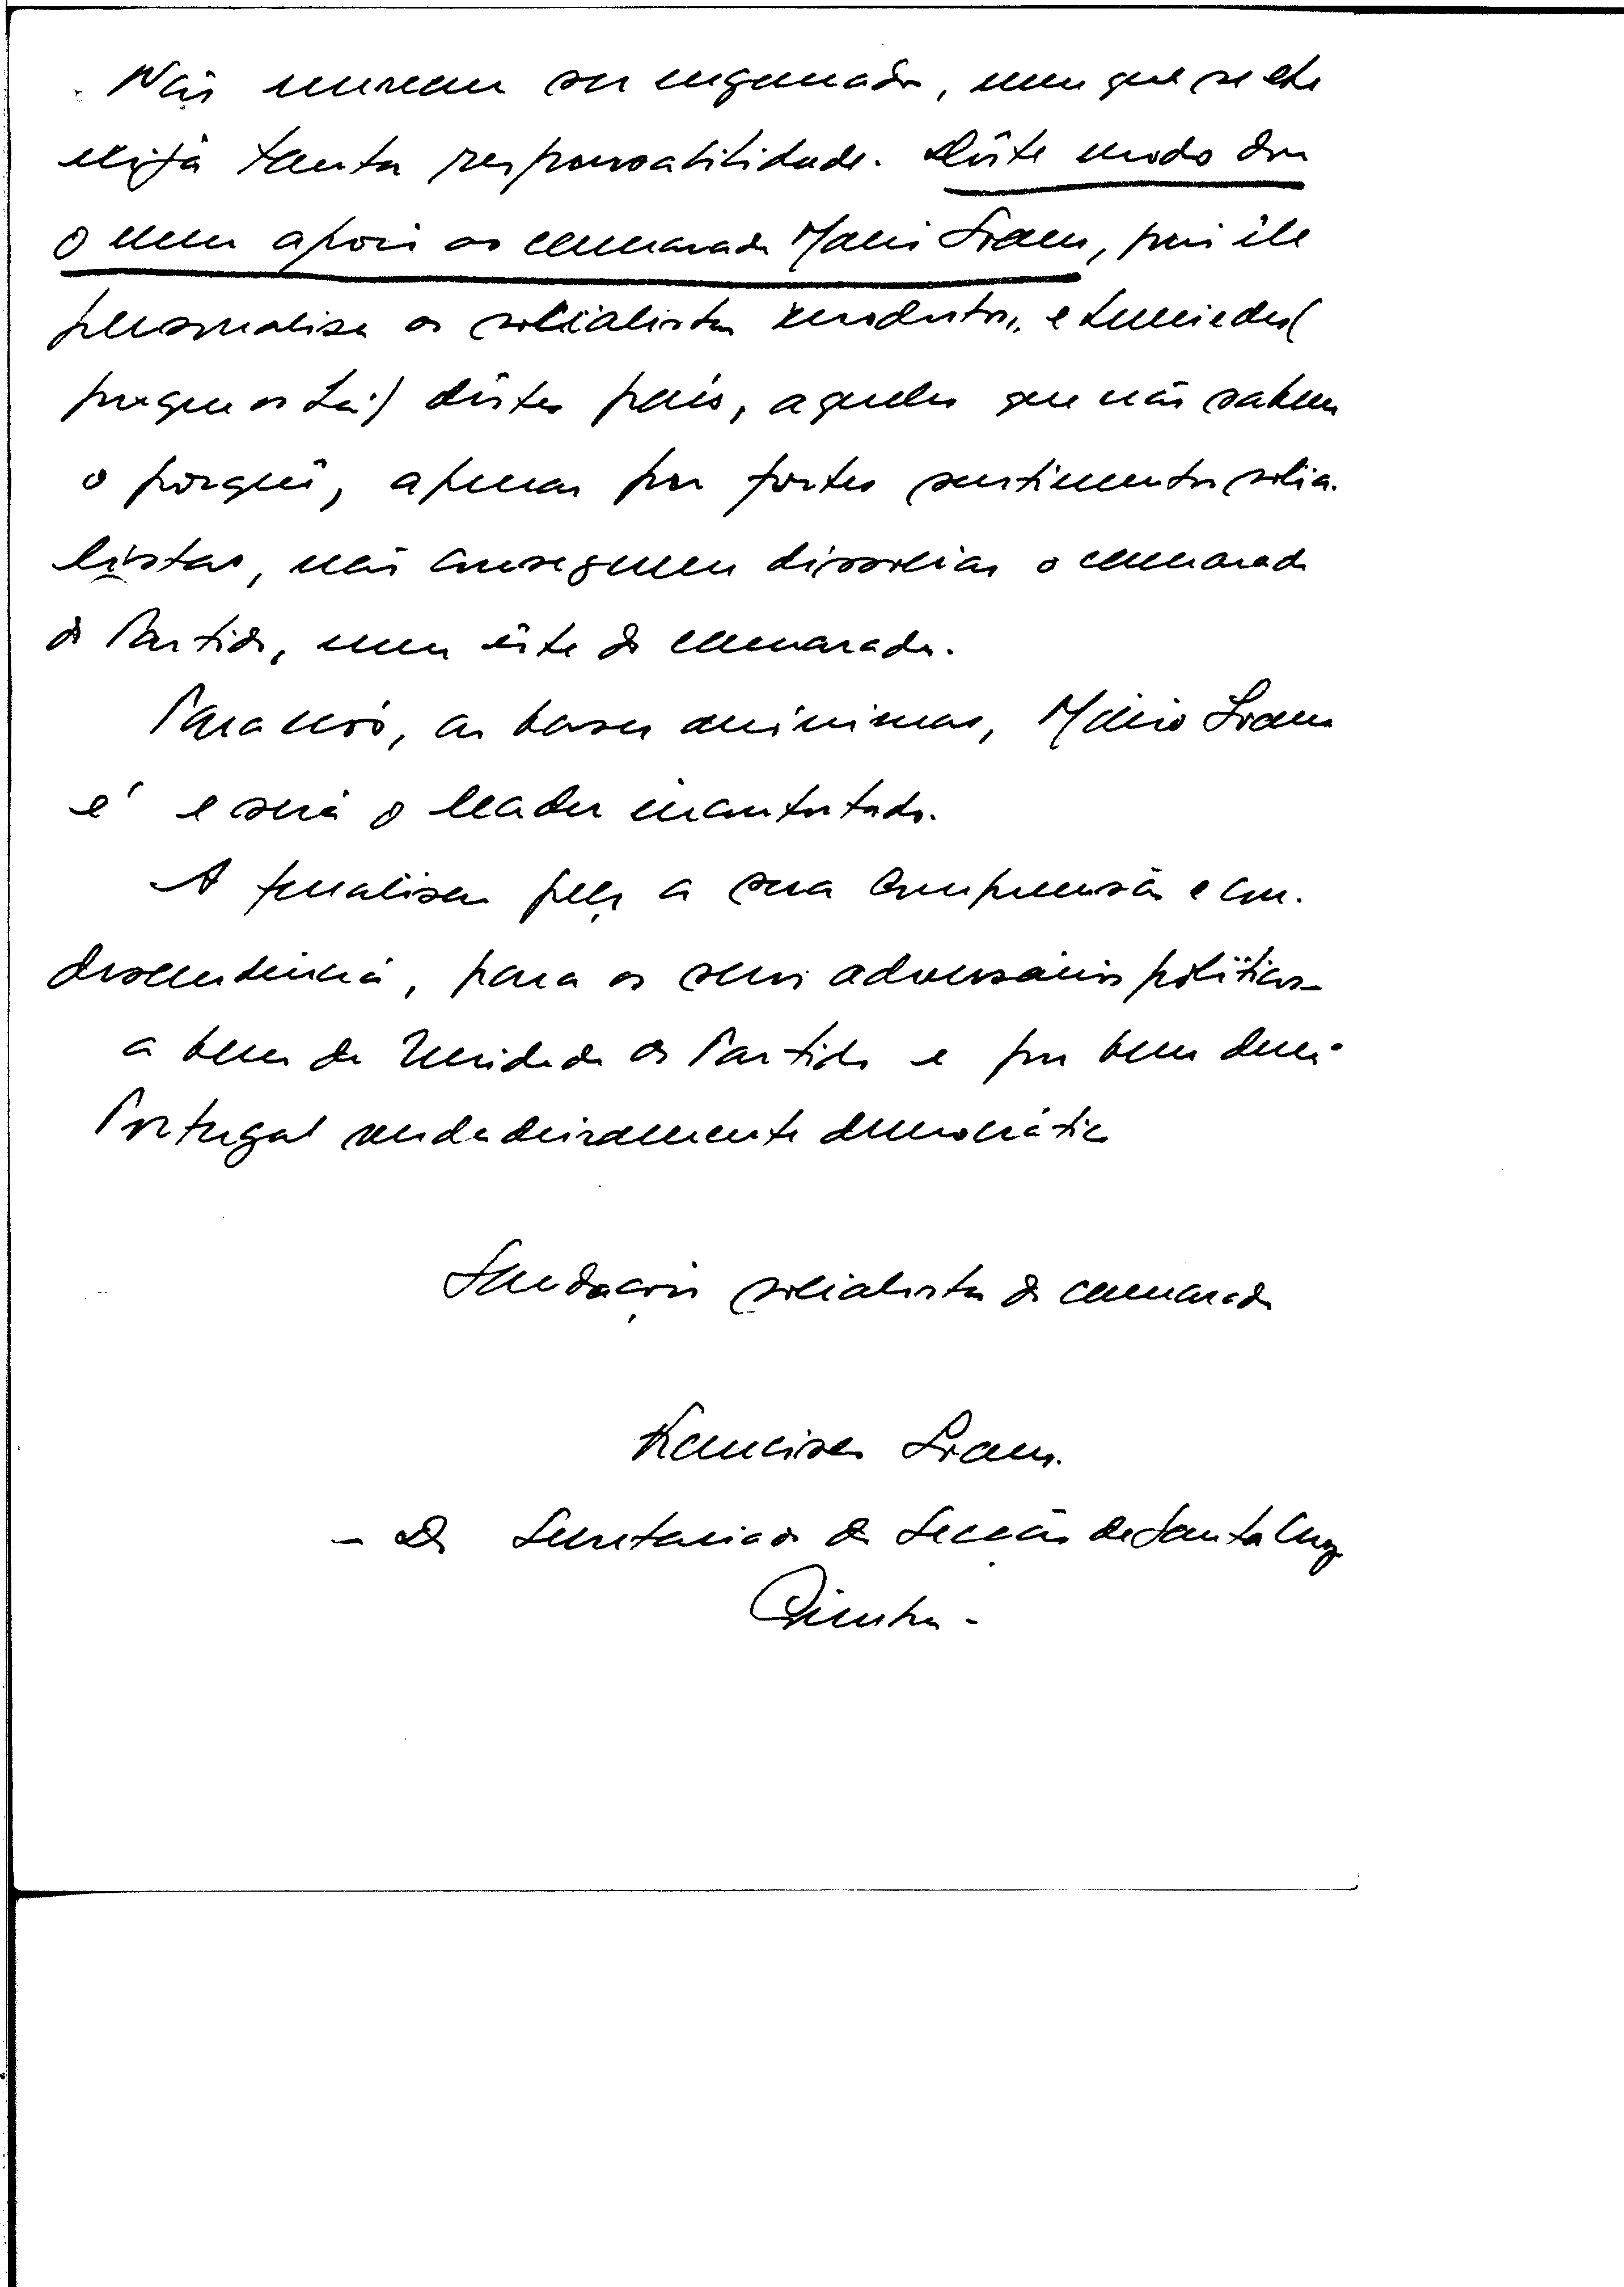 Não merecem ser enganados, nem que se lhe
exija tanta responsabilidade. Dêste modo dou
o meu apoio ao camarada Mário Soares, pois êle
personalisa os socialistas modestos, e
porque os há!) dêstes país, aqueles que não sabem
o porquê, apenas por fortes sentimentos socia-
listas, não conseguem dissociar o camarada
do Partido, nem êste do camarada.
Para nós, as bases mínimas, Mário Soares
é e será o leader incontestado.
A finalisar peço a sua compreensão e con-
descendência, para os seus adversários políticos
a bem da Unidade do Partido e por bem dum
Portugal verdadeiramente democrático
Saudações socialistas do camarada
Francisco Soares.
- Do Secretariado da Secção de Santa Cruz
Coimbra -